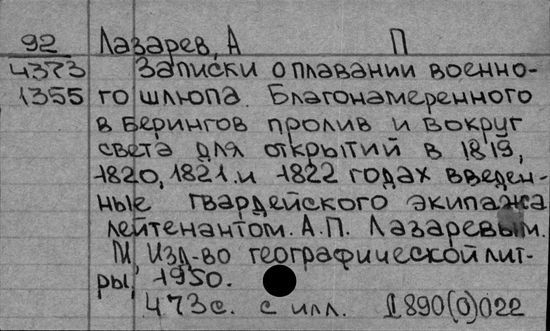 92 Лазарев, А П
4373 Записки о плавании военно-
1355 го шлюпа. Благонамеренного
в Берингов пролив и вокруг
света для открытий в 1819,
1820, 1821 и 1822 годах введен-
ные гвардейского экипажа
лейтенантом. А.П. Лазаревым.
М, Изд-во географической лит-
ры, 1950.
473с. с илл. Д890(0)022